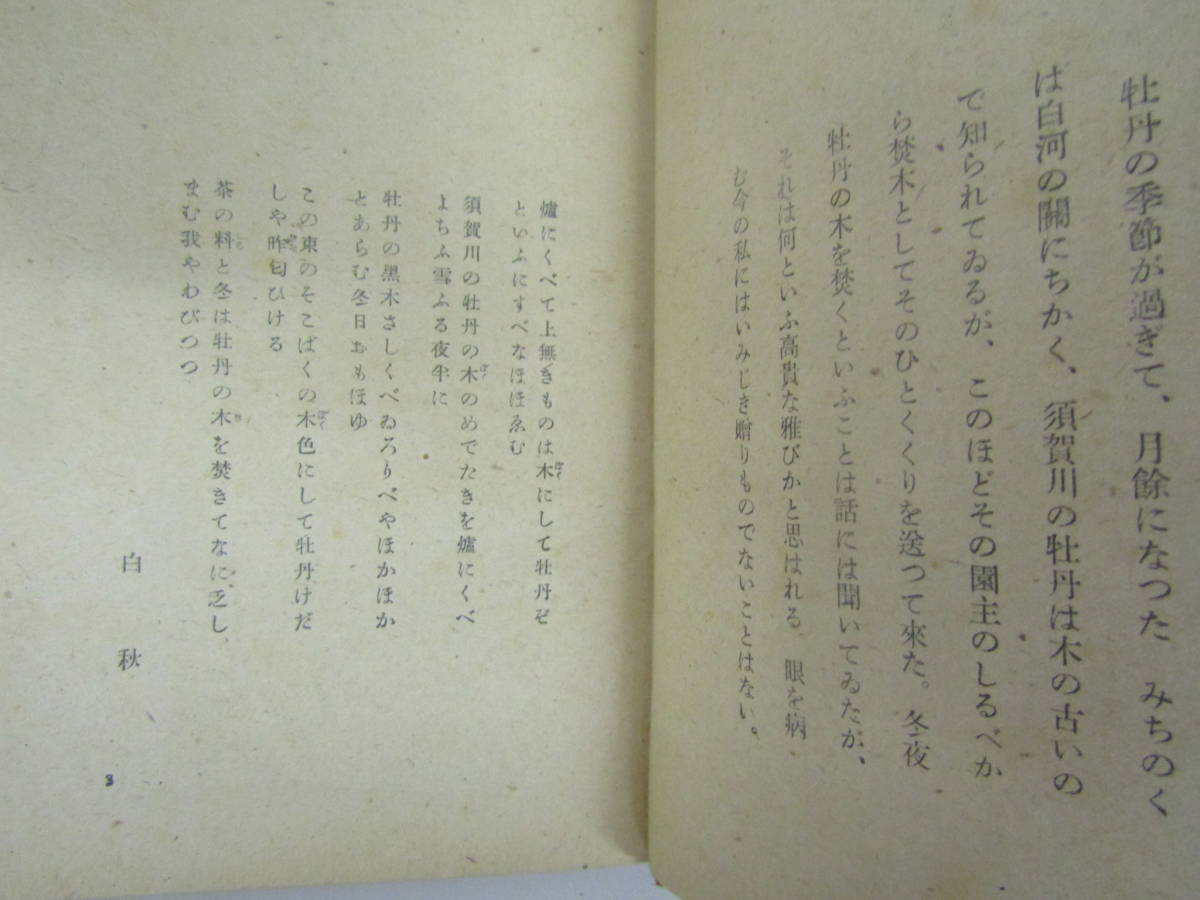 牡丹の季節が過ぎて、月餘になつた　みちのく
は白河の關にちかく、須賀川の牡丹は木の古いの
で知られてゐるが、このほどその園主のしるべか
ら焚木としてそのひとくくりを送つて來た。冬夜
牡丹の木を焚くといふことは話には聞いてゐたが、
それは何といふ高貴な雅びかと思はれる　眼を病
む今の私にはいみじき贈りものでないことはない。
爐にくべて上無きものは木にして牡丹ぞ
といふにすべなほほゑむ
須賀川の牡丹の木のめでたきを爐にくべ
よちふ雪ふる夜半に
牡丹の黑木さしくべゐろりべやほかほか
とあらむ冬日おもほゆ
この束のそこばくの木色にして牡丹けだ
しや昨匂ひける
茶の料と冬は牡丹の木を焚きてなに乏し、
まむ我やわびつつ
白秋
3